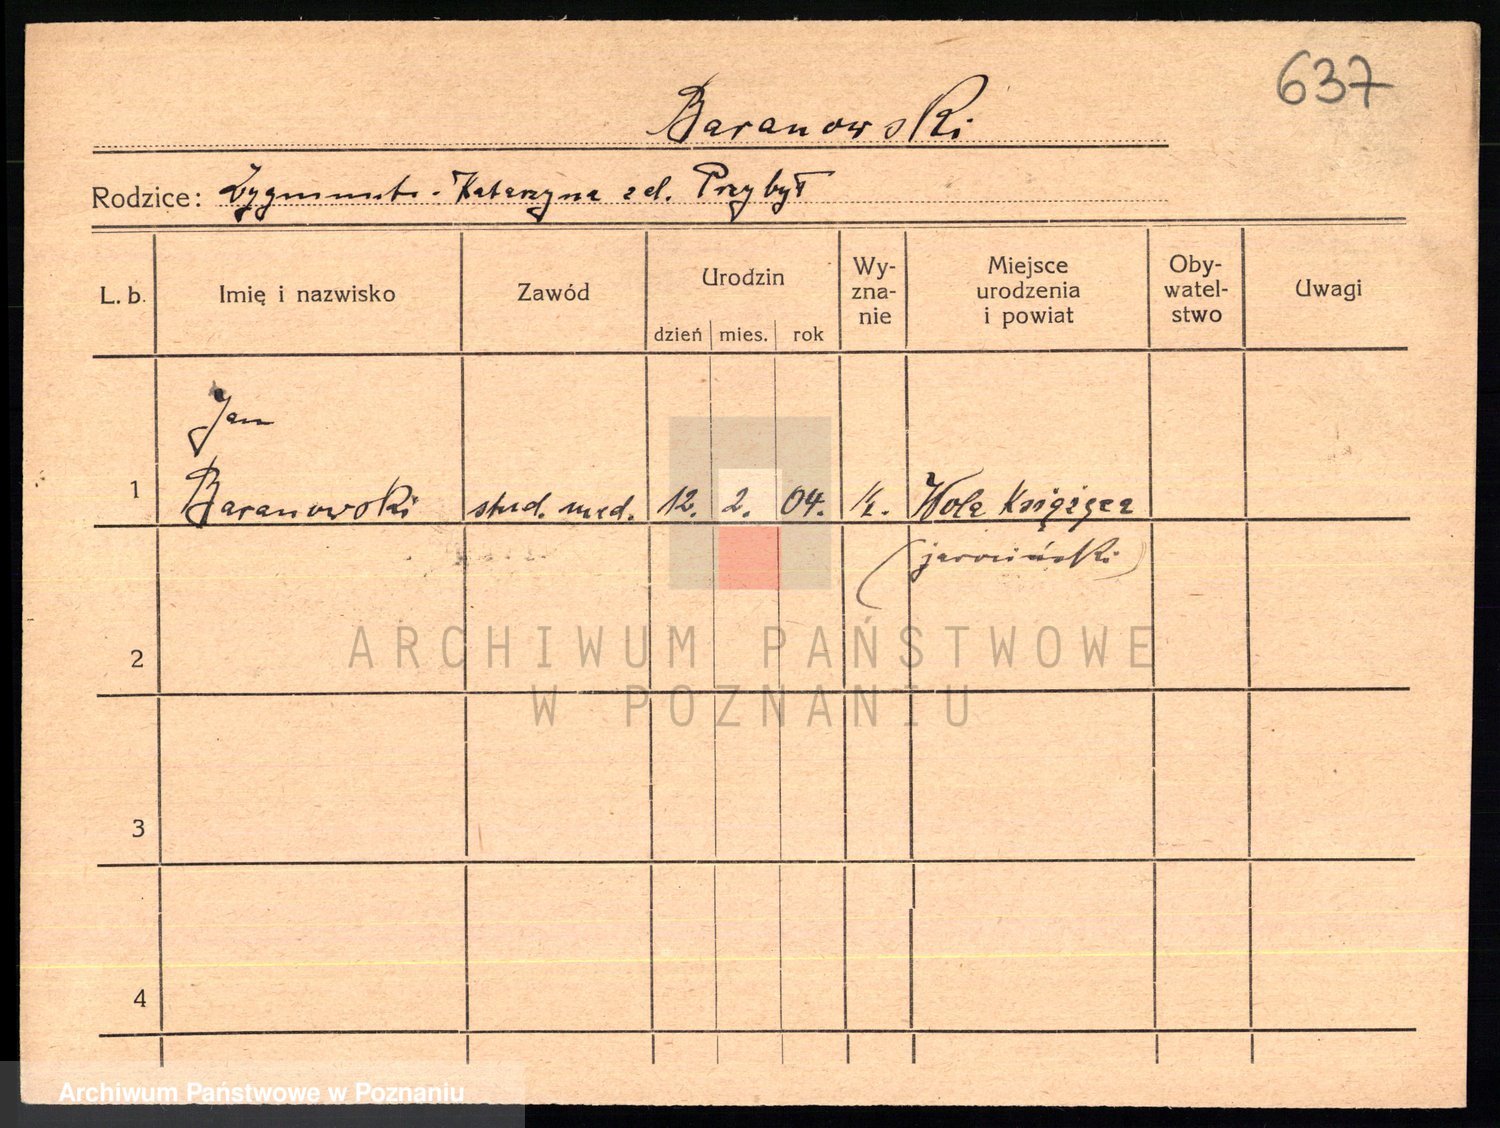 637
Baranowski
Rodzice: Zygmunt - Katarzyna z d. Przybył
L. b. Imię i nazwisko Zawód Urodzin Wy-zna-nie Miejsce urodzenia i powiat Oby-watel-stwo Uwagi
dzień mies. rok
Jan
1 Baranowski stud. med. 12. 2. 04. k. Wola Książęca
(jarociński)
2
3
4
ARCHIWUM PAŃSTWOWE
W POZNANIU
Archiwum Państwowe w Poznaniu